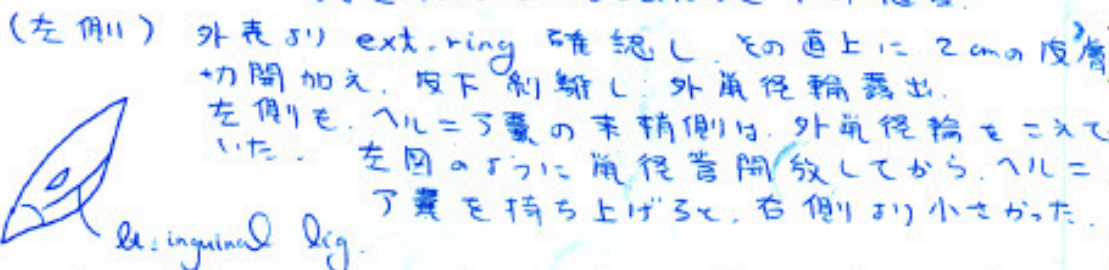 (左側) 外表より ext. ring 確認し、その直上に 2cmの皮膚
切開加え、皮下剥離し、外鼠径輪露出.
左側も、ヘルニア嚢の末梢側は、外鼠径輪をこえて
いた. 左図のように鼠径管開放してから、ヘルニ
ア嚢を持ち上げると、右側より小さかった.
inguinal lig.